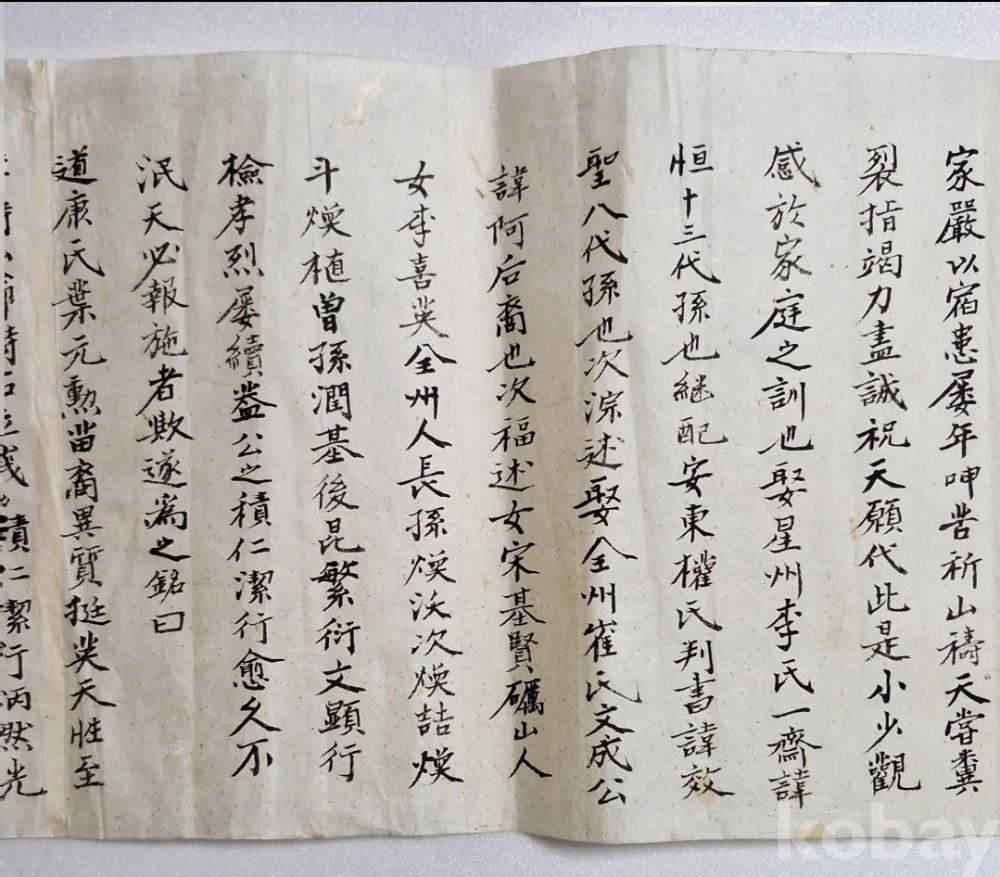 家嚴以宿患屡年呻苦祈山禱天嘗糞
裂指竭力盡誠祝天願代此是小少觀
感於家庭之訓也娶星州李氏一齋諱
恒十三代孫也継配安東權氏判書諱效
聖八代孫也次淙述娶全州崔氏文成公
諱阿后裔也次福述女宋基賢礪山人
女李喜英全州人長孫煐沃次煥喆煐
斗煐植曽孫潤基後昆繁衍文顯行
檢孝烈屡續盖公之積仁潔行愈久不
泯天必報施者歟遂為之銘曰
道康氏葉元勲苗裔異質挺英天性至
積仁潔行炳然光
kobay